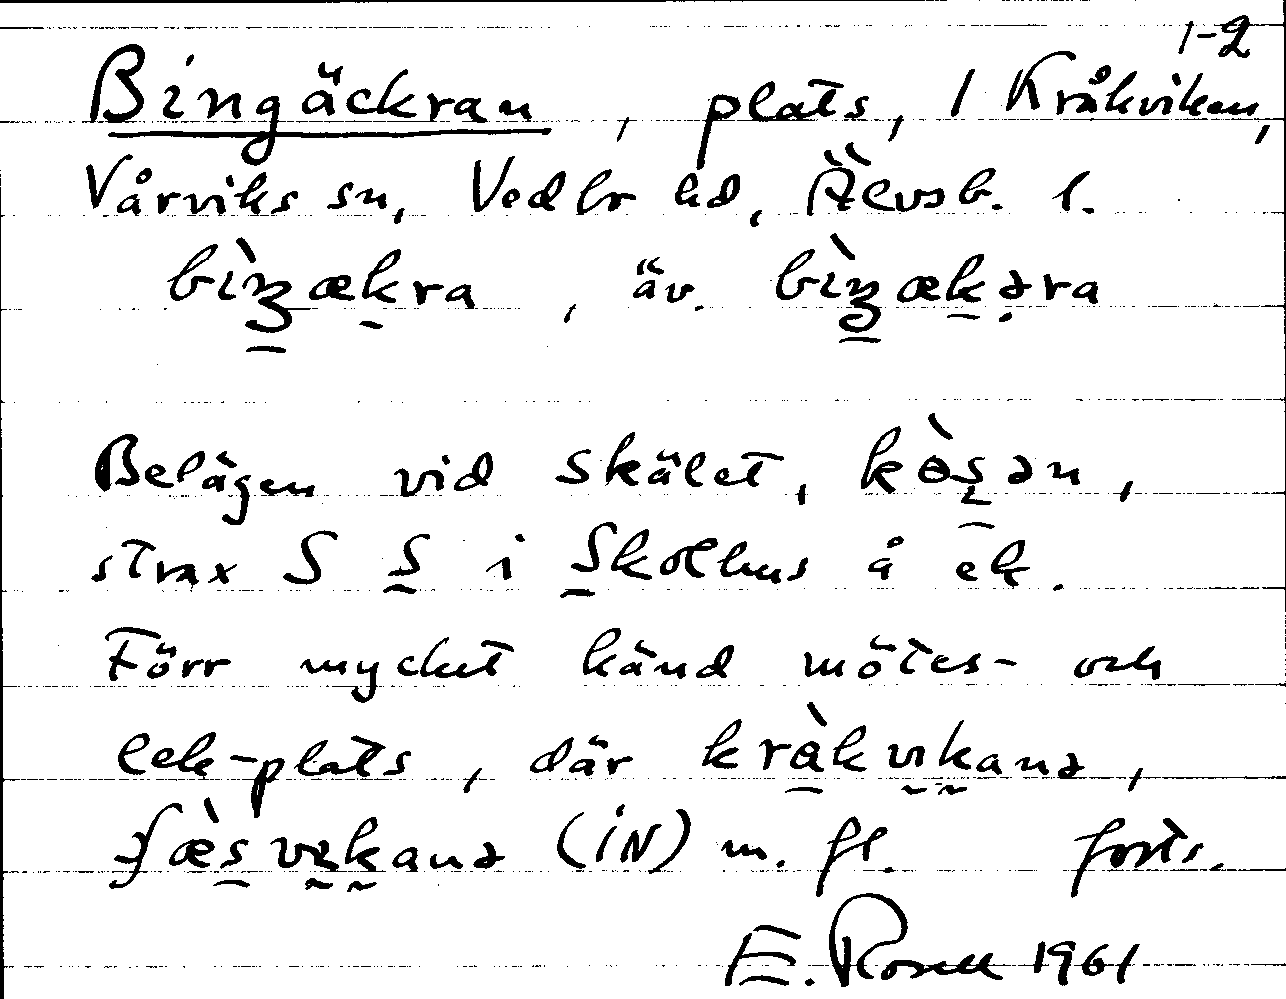 1-2
Bingäckran, plats, 1 Kråkviken,
Vårviks sn, Vedbo hd, Älvsb. l.
bìŋækra, äv. bìŋækəra
Belägen vid skälet, kòsən,
strax S S i Skolhus å ek.
Förr mycket känd mötes- och
lek-plats, där kràkvikanə,
fæ̀svikanə (iN) m. fl. forts.
E. Rosell 1961